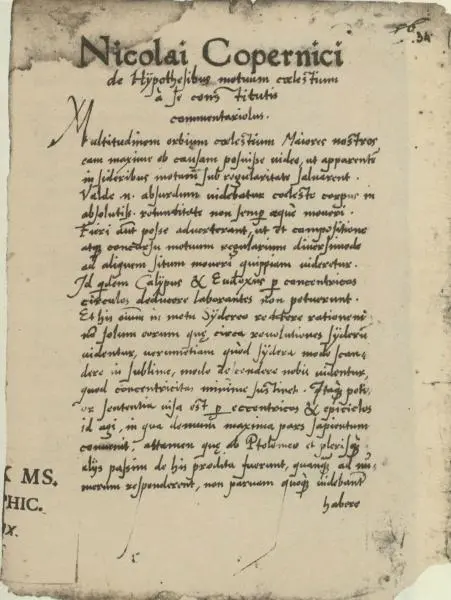 76
34
Nicolai Copernici
de Hypothesibus motuum cœlestium
à se constitutis
commentariolus.
Multitudinem orbium cœlestium Maiores nostros
eam maxime ob causam posuisse video, ut apparentē
in sideribus motum sub regularitate salvarent.
Valde .n. absurdum videbatur cœleste corpus in
absolutiss. rotunditate non semp æque moveri.
Fieri aūt posse adverterant, ut et compositione
atq concursu motuum regularium diversimode
ad aliquem situm moveri quippiam videretur.
Id qdem Calippus & Eudoxus p concentricos
circulos deducere laborantes non potuerunt.
Et his oīum in motu sydereo reddere rationem
nō solum eorum quę circa revolutiones syderū
videntur, verumetiam quòd sydera modo scan-
dere in sublime, modo descendere nobis videntur,
quod concentricitas minime sustinet. Itaq poti-
or sententia visa est p eccentricos & epiciclos
id agi, in qua demum maxima pars sapientum
convenit, attamen quę ab Ptolomeo et plerisq
alijs passim de his prodita fuerunt, quanq ad nu-
merum responderent, non parvam quoq videbant
habere
MS.
PHIC.
IX.